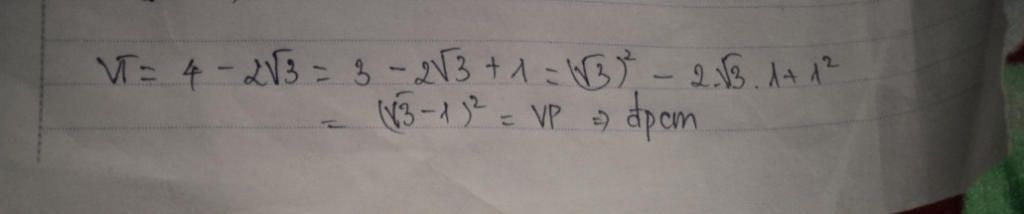 VT = 4 - 2√3 = 3 - 2√3 + 1 = (√3)² - 2.√3.1 + 1²
= (√3 - 1)² = VP ⇒ đpcm